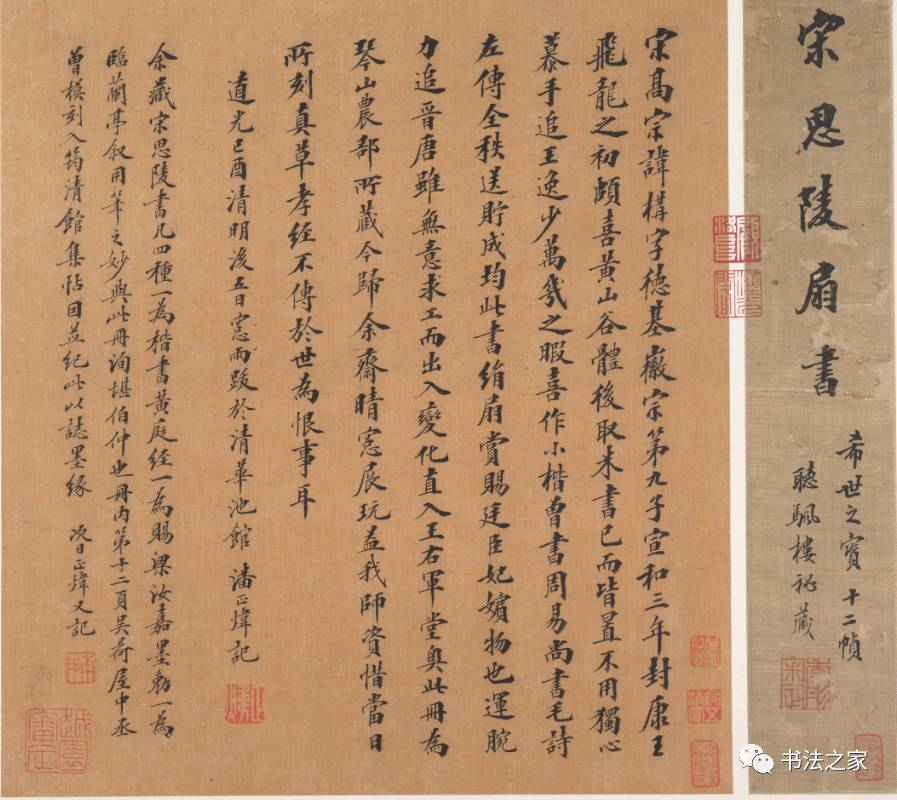 宋思陵扇書
希世之寶 十二幀
聽颿樓祕藏
宋高宗諱構字德基徽宗第九子宣和三年封康王
飛龍之初頗喜黃山谷體後取米書已而皆置不用獨心
慕手追王逸少萬幾之暇喜作小楷曾書周易尚書毛詩
左傳全秩送貯成均此書絹扇賞賜廷臣妃嬪物也運腕
力追晉唐雖無意求工而出入變化直入王右軍堂奧此冊為
琴山農部所藏今歸余齋晴窓展玩益我師資惜當日
所刻真草孝經不傳於世為恨事耳
道光己酉清明後五日窓雨跋於清華池館 潘正煒記
余藏宋思陵書凡四種一為楷書黃庭經一為賜梁汝嘉墨勅一為
臨蘭亭敘用筆之妙與此冊洵堪伯仲也冊內第十二頁吳荷屋中丞
曾模刻入筠清館集帖因並紀此以誌墨緣 次日正煒又記
书法之家